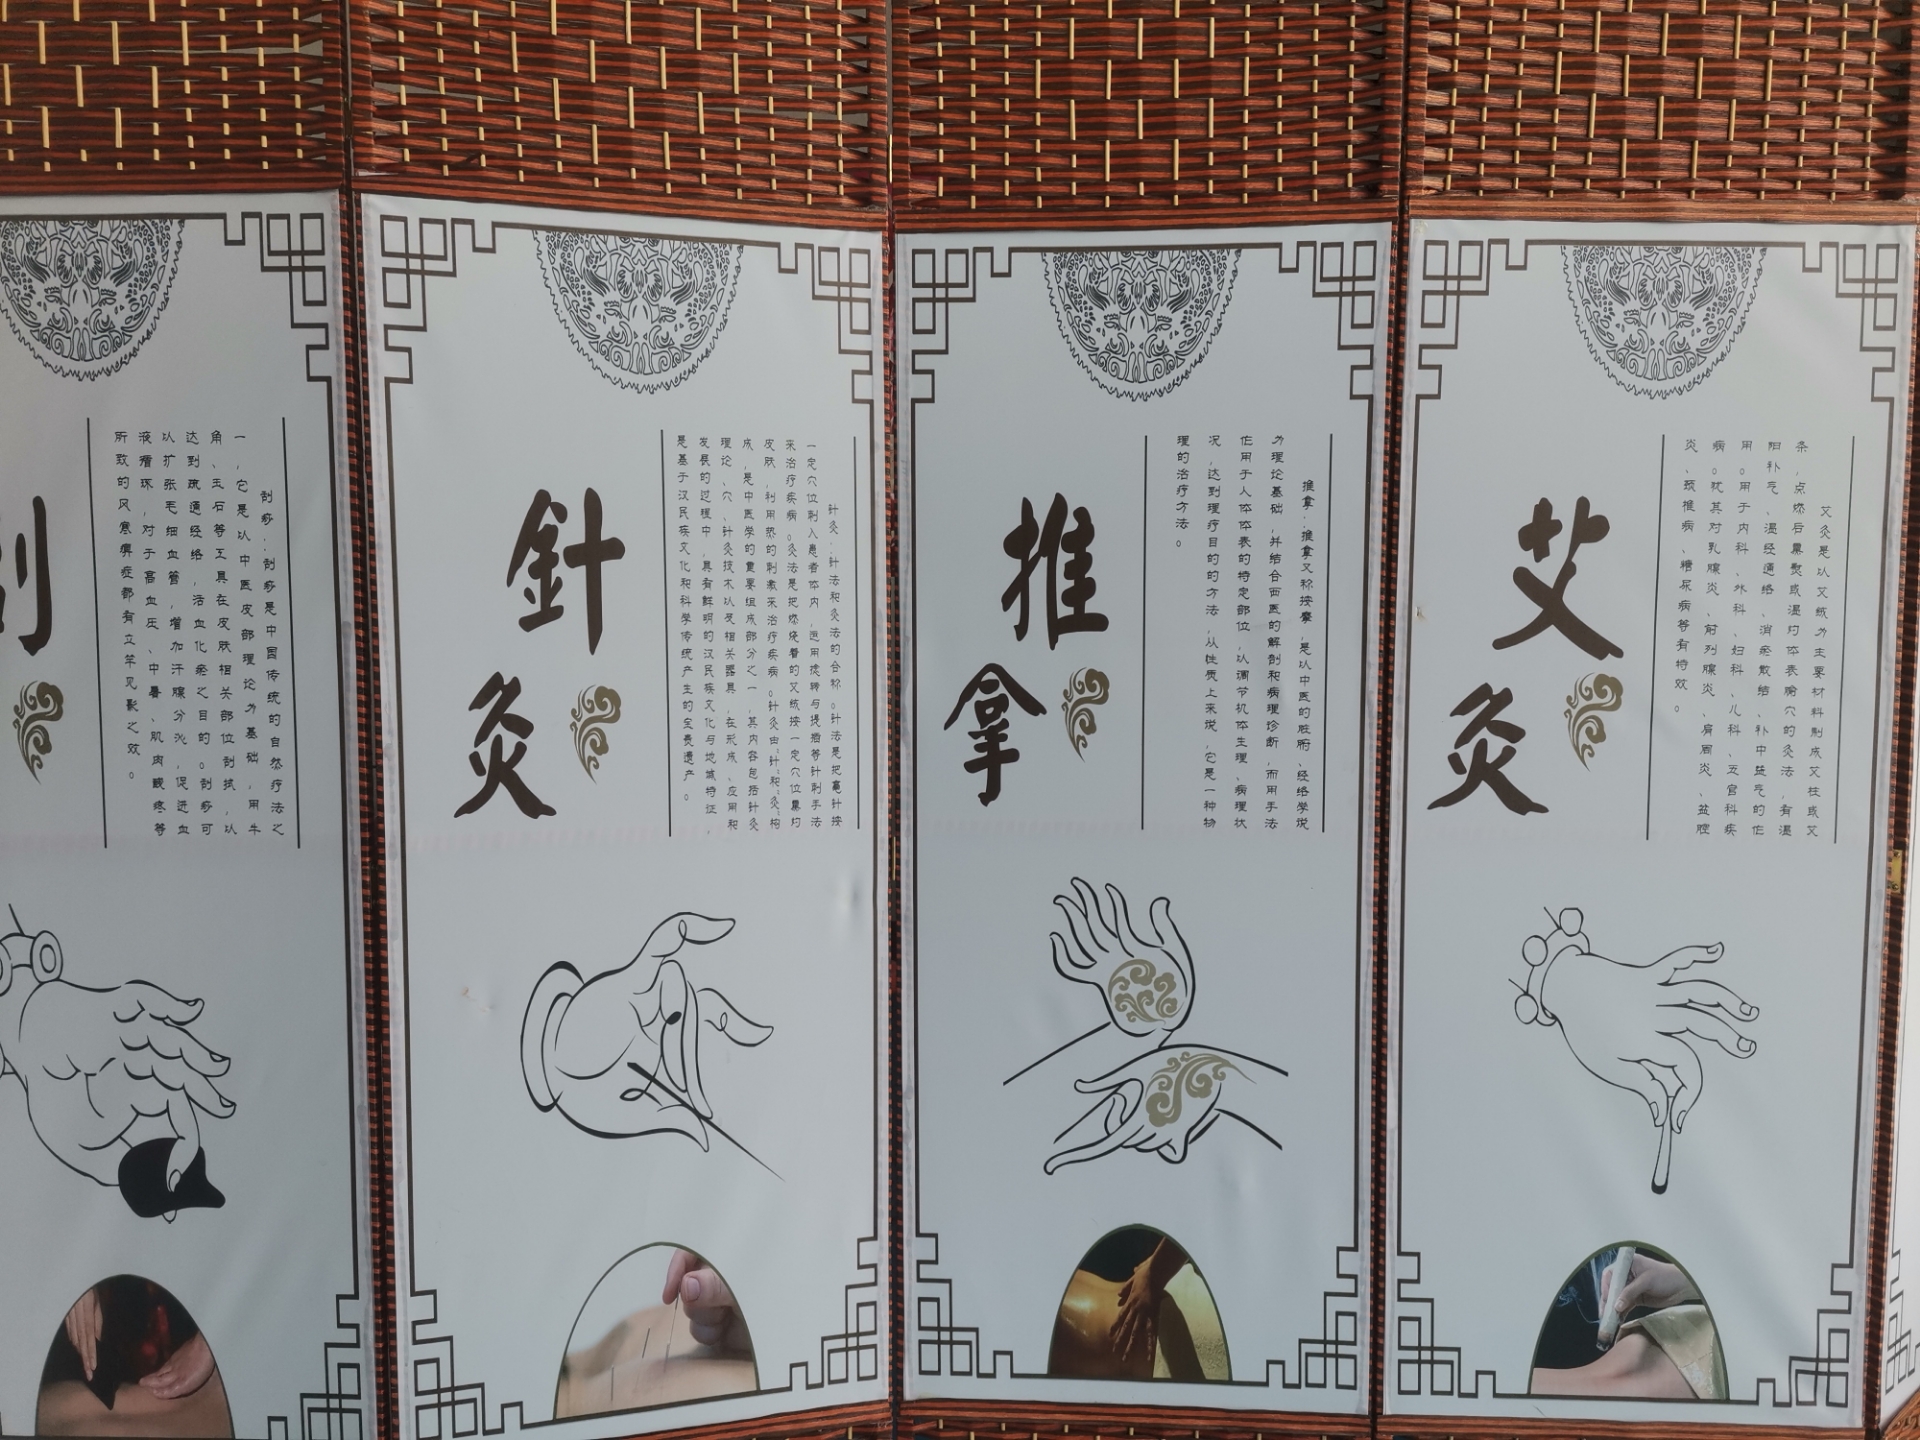 刮痧:刮痧是中国传统的自然疗法之
一,它是以中医皮部理论为基础,用牛
角、玉石等工具在皮肤相关部位刮拭,以
达到疏通经络,活血化瘀之目的。刮痧可
以扩张毛细血管,增加汗腺分泌,促进血
液循环,对于高血压、中暑、肌肉酸疼等
所致的风寒痹症都有立竿见影之效。
針灸
针灸:针法和灸法的合称。针法是把毫针按
一定穴位刺入患者体内,运用捻转与提插等针刺手法
来治疗疾病。灸法是把燃烧着的艾绒按一定穴位熏灼
皮肤,利用热的刺激来治疗疾病。针灸由“针”和“灸”构
成,是中医学的重要组成部分之一,其内容包括针灸
理论、穴、针灸技术以及相关器具,在形成、应用和
发展的过程中,具有鲜明的汉民族文化与地域特征,
是基于汉民族文化和科学传统产生的宝贵遗产。
推拿
推拿:推拿又称按摩,是以中医的脏腑、经络学说
为理论基础,并结合西医的解剖和病理诊断,而用手法
作用于人体体表的特定部位,以调节机体生理、病理状
况,达到理疗目的的方法,从性质上来说,它是一种物
理的治疗方法。
艾灸
艾灸是以艾绒为主要材料制成艾柱或艾
条,点燃后熏熨或温灼体表腧穴的灸法,有温
阳补气、温经通络、消瘀散结、补中益气的作
用。用于内科、外科、妇科、儿科、五官科疾
病。尤其对乳腺炎、前列腺炎、肩周炎、盆腔
炎、颈椎病、糖尿病等有特效。